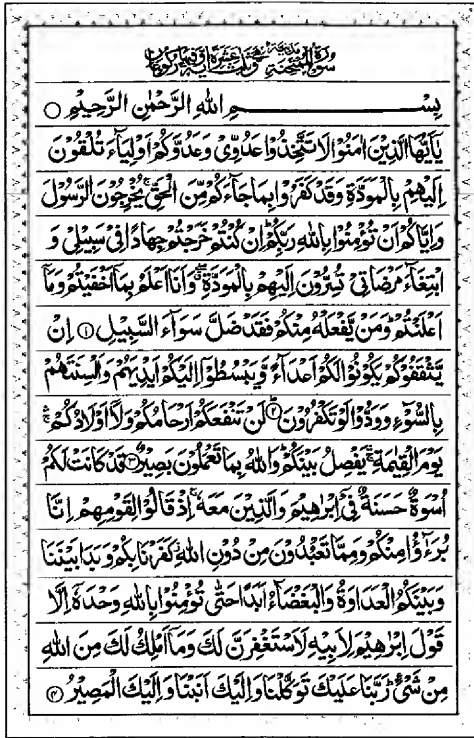 سُوْرَةُ الْمُمْتَحِنَةِ مَدَنِيَّةٌ وَّهِيَ ثَلٰثَ عَشْرَةَ اٰيَةً وَّفِيْهَا رُكُوْعَانِ
بِسْمِ اللهِ الرَّحْمٰنِ الرَّحِيْمِ ○
يٰۤاَيُّهَا الَّذِيْنَ اٰمَنُوْا لَا تَتَّخِذُوْا عَدُوِّيْ وَعَدُوَّكُمْ اَوْلِيَآءَ تُلْقُوْنَ
اِلَيْهِمْ بِالْمَوَدَّةِ وَقَدْ كَفَرُوْا بِمَا جَآءَكُمْ مِّنَ الْحَقِّ ۚ يُخْرِجُوْنَ الرَّسُوْلَ
وَاِيَّاكُمْ اَنْ تُؤْمِنُوْا بِاللهِ رَبِّكُمْ ؕ اِنْ كُنْتُمْ خَرَجْتُمْ جِهَادًا فِيْ سَبِيْلِيْ وَ
ابْتِغَآءَ مَرْضَاتِيْ تُسِرُّوْنَ اِلَيْهِمْ بِالْمَوَدَّةِ ۖ وَاَنَا اَعْلَمُ بِمَاۤ اَخْفَيْتُمْ وَمَاۤ
اَعْلَنْتُمْ ؕ وَمَنْ يَّفْعَلْهُ مِنْكُمْ فَقَدْ ضَلَّ سَوَآءَ السَّبِيْلِ ﴿۱﴾ اِنْ
يَّثْقَفُوْكُمْ يَكُوْنُوْا لَكُمْ اَعْدَآءً وَّيَبْسُطُوْۤا اِلَيْكُمْ اَيْدِيَهُمْ وَاَلْسِنَتَهُمْ
بِالسُّوْٓءِ وَوَدُّوْا لَوْ تَكْفُرُوْنَ ﴿۲﴾ؕ لَنْ تَنْفَعَكُمْ اَرْحَامُكُمْ وَلَاۤ اَوْلَادُكُمْ ۚ
يَوْمَ الْقِيٰمَةِ ۚ يَفْصِلُ بَيْنَكُمْ ؕ وَاللهُ بِمَا تَعْمَلُوْنَ بَصِيْرٌ ﴿۳﴾ قَدْ كَانَتْ لَكُمْ
اُسْوَةٌ حَسَنَةٌ فِيْۤ اِبْرٰهِيْمَ وَالَّذِيْنَ مَعَهٗ ۚ اِذْ قَالُوْا لِقَوْمِهِمْ اِنَّا
بُرَءٰٓؤُا مِنْكُمْ وَمِمَّا تَعْبُدُوْنَ مِنْ دُوْنِ اللهِ ؗ كَفَرْنَا بِكُمْ وَبَدَا بَيْنَنَا
وَبَيْنَكُمُ الْعَدَاوَةُ وَالْبَغْضَآءُ اَبَدًا حَتّٰى تُؤْمِنُوْا بِاللهِ وَحْدَهٗۤ اِلَّا
قَوْلَ اِبْرٰهِيْمَ لِاَبِيْهِ لَاَسْتَغْفِرَنَّ لَكَ وَمَاۤ اَمْلِكُ لَكَ مِنَ اللهِ
مِنْ شَيْءٍ ؕ رَبَّنَا عَلَيْكَ تَوَكَّلْنَا وَاِلَيْكَ اَنَبْنَا وَاِلَيْكَ الْمَصِيْرُ ﴿۴﴾